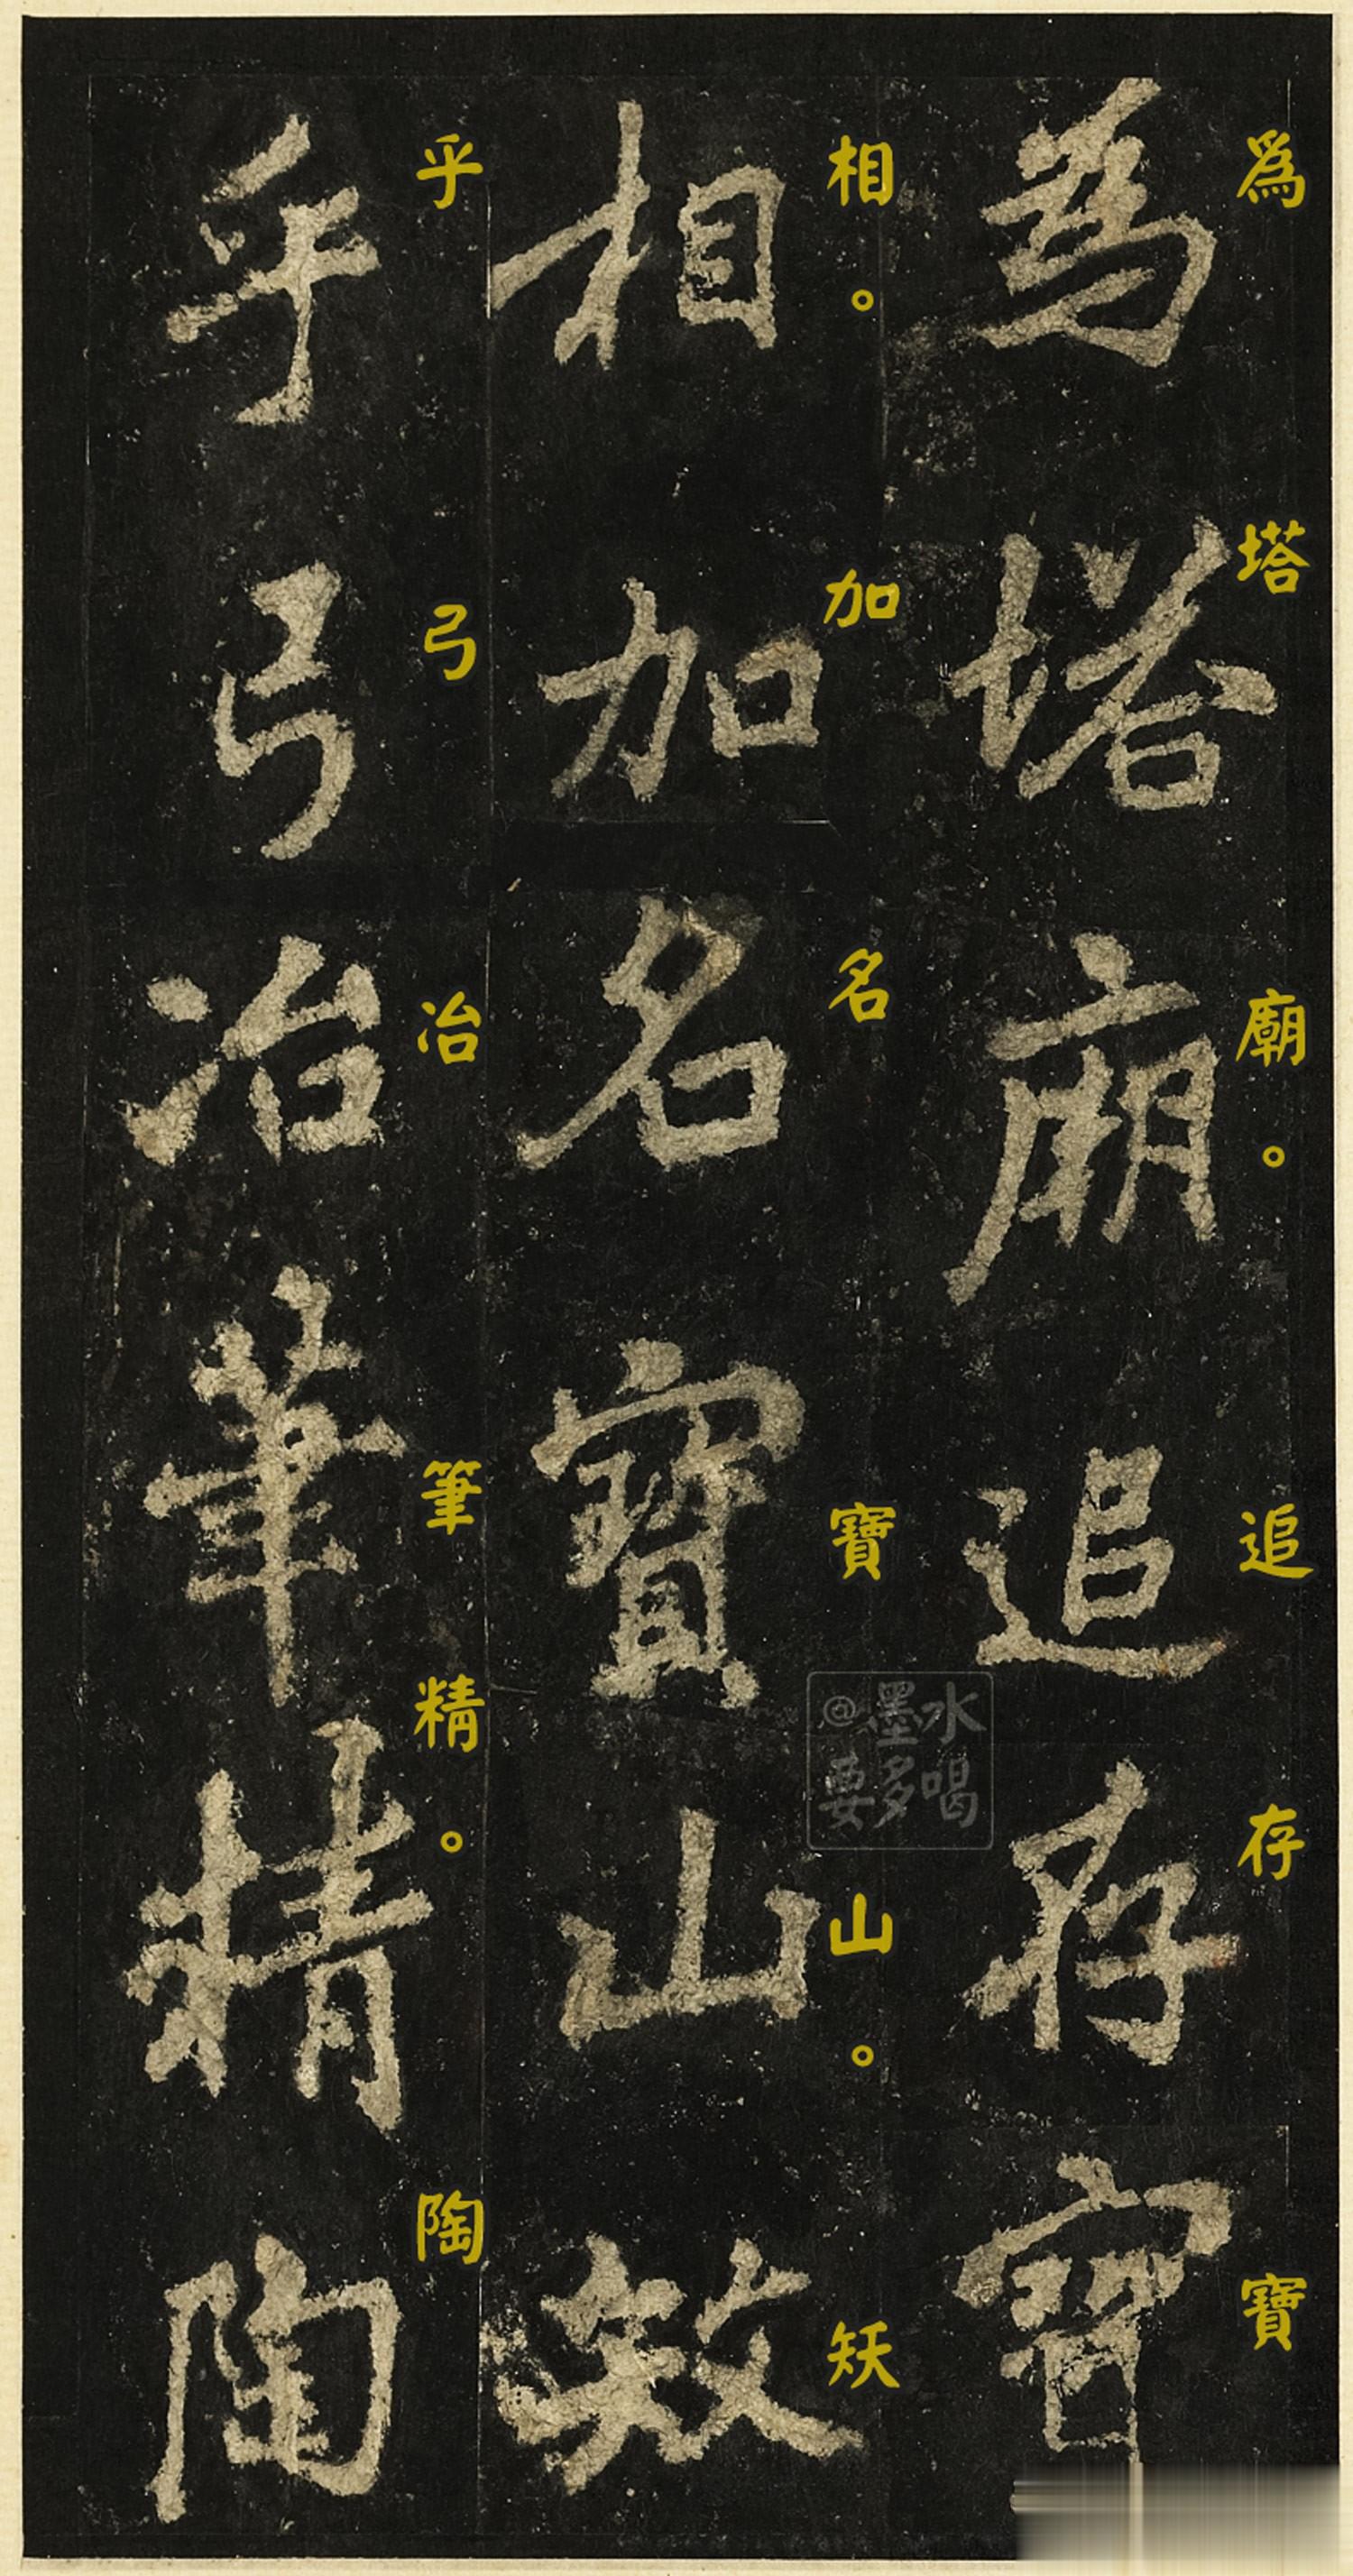 爲塔廟。追存寶
為塔廟追存寶
相。加名寶山。
相加名寶山
乎弓冶筆精。陶
乎弓冶筆精陶
@墨水
要多喝